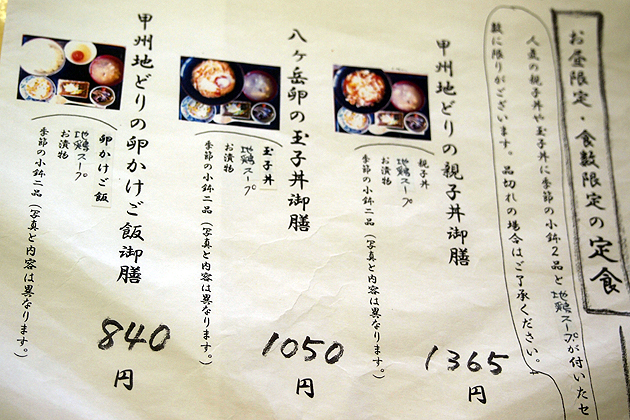 お昼限定・食数限定の定食
人気の親子丼や玉子丼に季節の小鉢2品と地鶏スープが付いたセ
数に限りがございます。品切れの場合はご了承ください。
甲州地どりの親子丼御膳
親子丼
地鶏スープ
お漬物
季節の小鉢二品(写真と内容は異なります。)
1365円
八ヶ岳卵の玉子丼御膳
玉子丼
地鶏スープ
お漬物
季節の小鉢二品(写真と内容は異なります。)
1050円
甲州地どりの卵かけご飯御膳
卵かけご飯
地鶏スープ
お漬物
季節の小鉢二品(写真と内容は異なります。)
840円